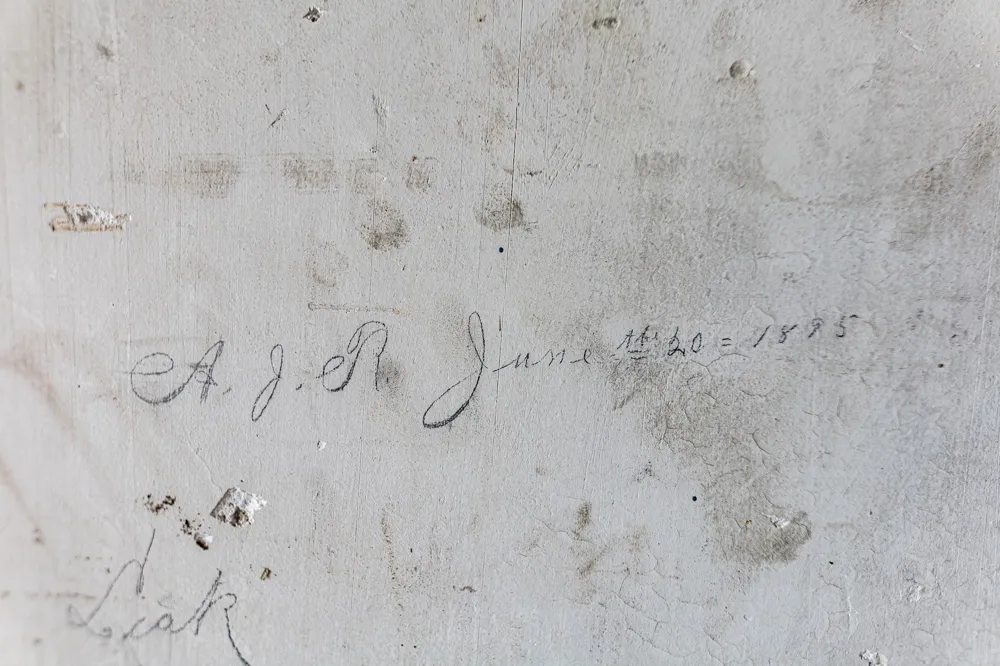 A. J. R. June the 20 = 1895